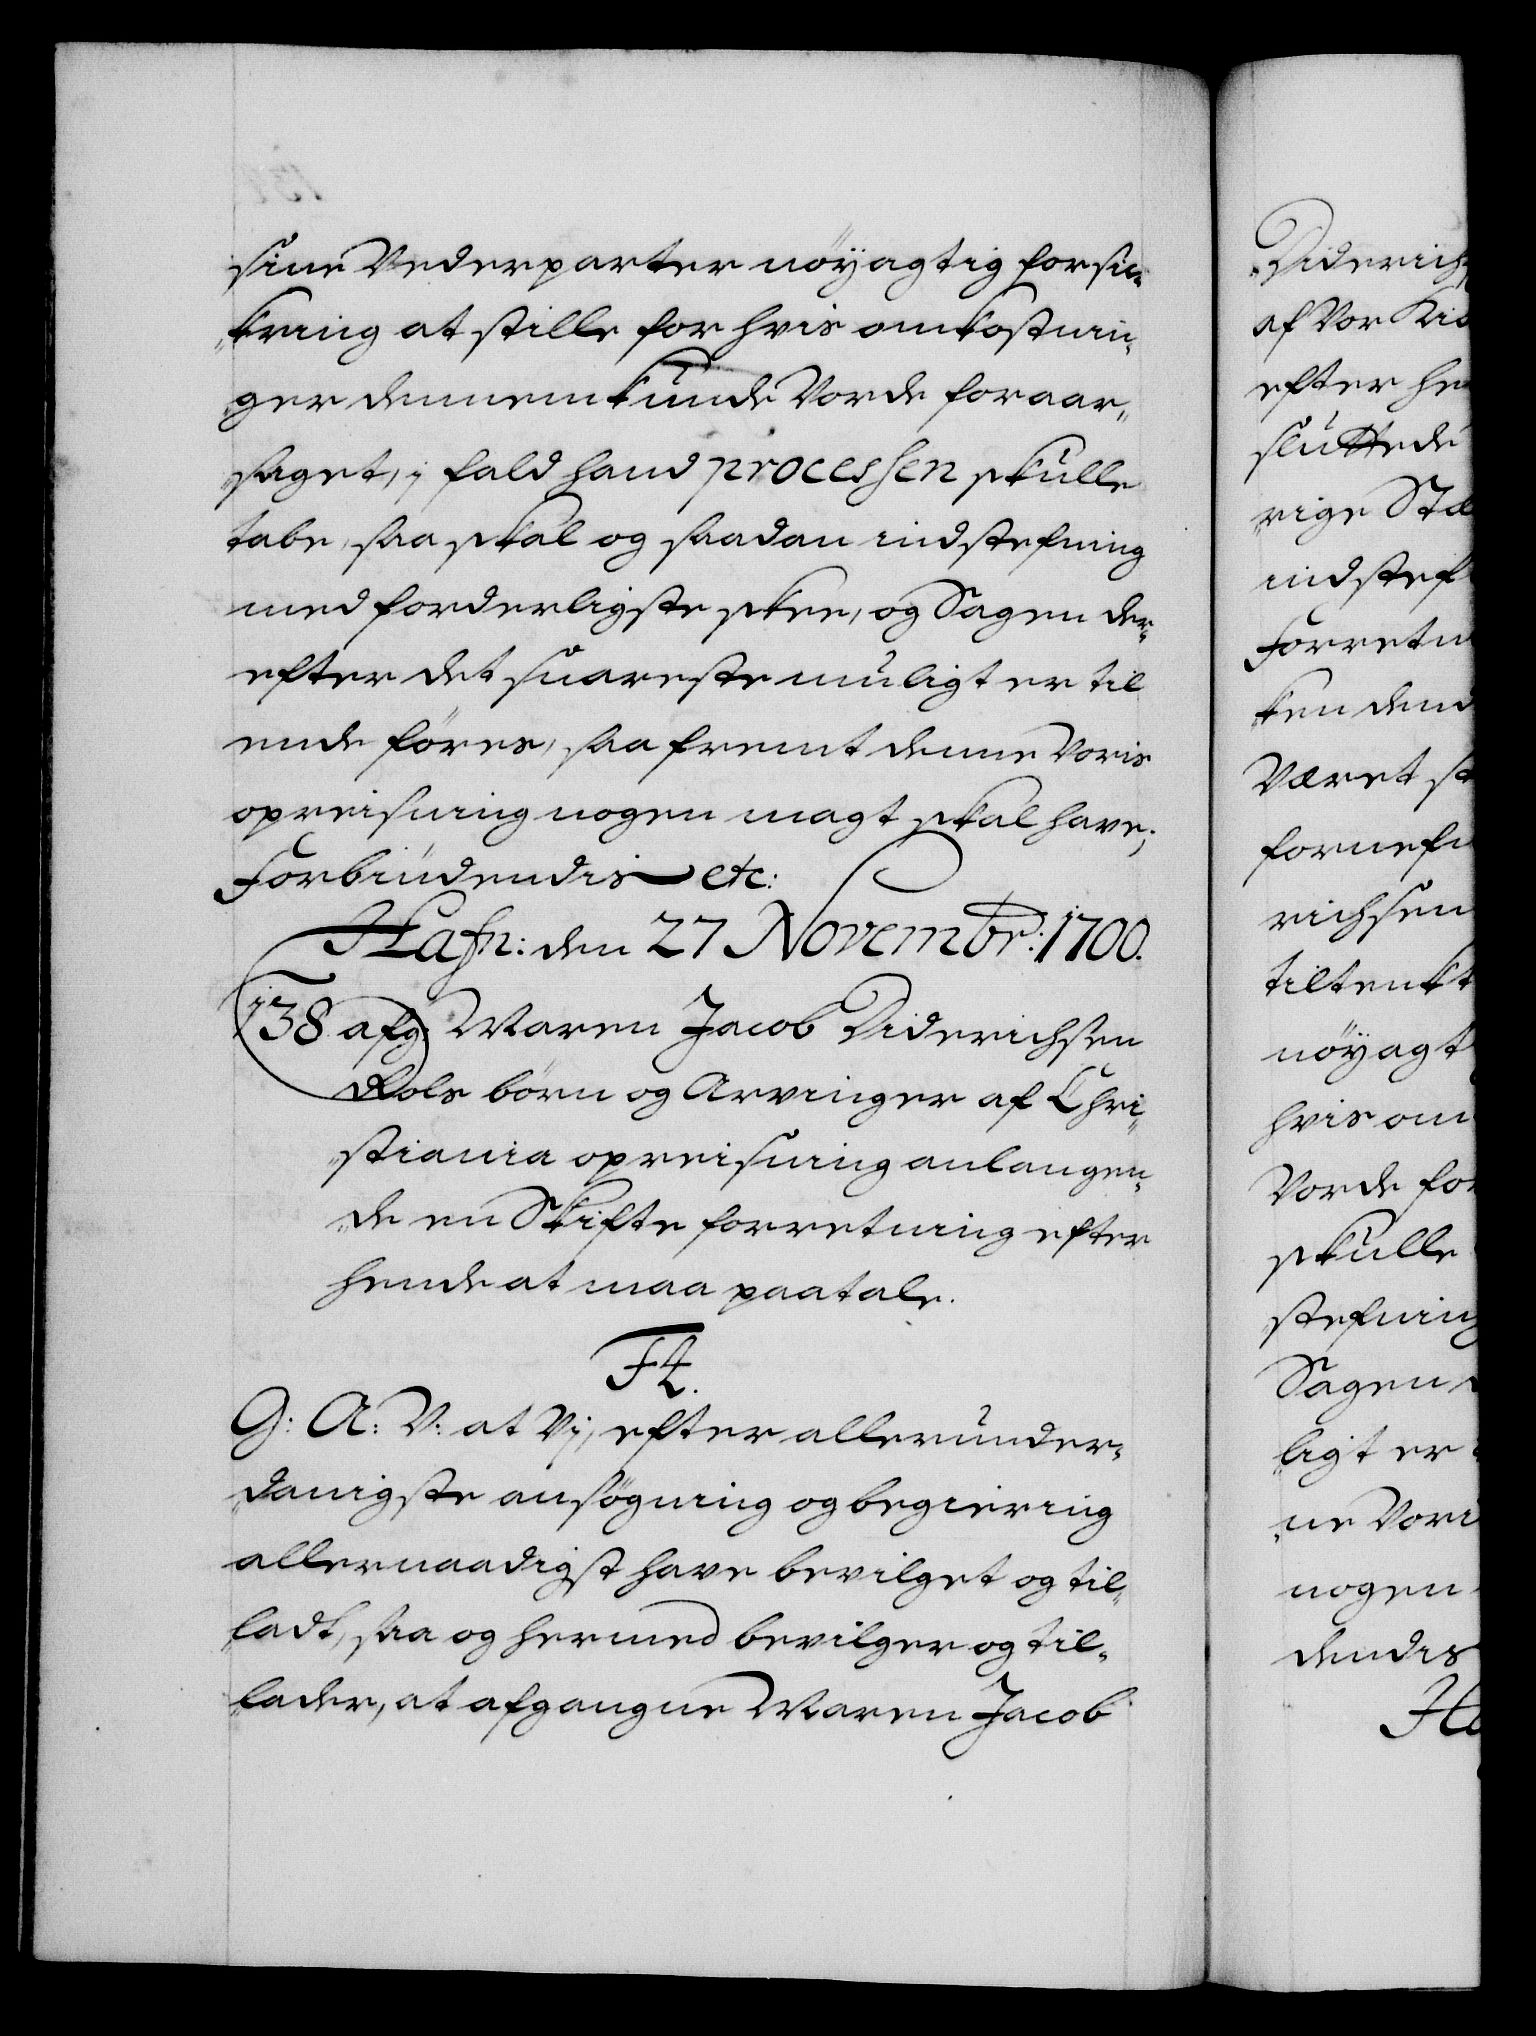 sine Vederparter nöyagtig forsic„
„kring at stille for hvis omkostnin„
„ger dennem kunde Vorde foraar„
„saget, i fald hand processen skulle
tabe, saa skal og saadan indstefning
med forderligste skee, og Sagen der„
efter det snareste muligt er til
ende føres, saa fremt denne Voris
opreisning nogen magt skal have;
Forbiudendis etc:
Hafn: den 27 Novembr: 1700.
138 afg: Maren Jacob Diderichsen
Kols börn og Arvinger af Chri„
„stiania opreisning anlangen„
„de en Skifte forretning efter
hende at maa paatale.
F4.
G: A: V: at Vj, efter allerunder„
„danigste ansögning og begiering
allernaadigst have bevilget og til„
„ladt, saa og hermed bevilger og til„
„lader, at afgangne Maren Jacob
„Diderichs
af Vor Kiö
efter he
sluttede
„rige Stæ
indstef
Forretn
„ken dend
Været st
fornefn
richsen
tiltenkt
nöyagt
hvis om
Vorde for
skulle
„stefning
Sagen
„ligt er
„ne Vori
nogen
dendis
Ha